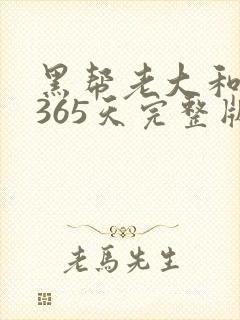 黑帮老大和
365天完整版
老馬先生